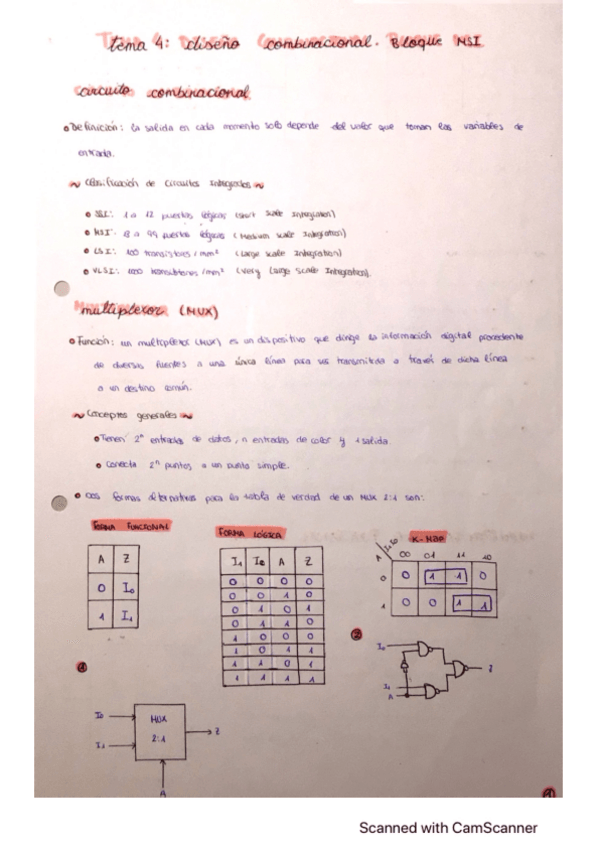 tema 4: diseño combinacional. Bloque MSI
circuito combinacional
Definición: la salida en cada momento solo depende del valor que toman las variables de
entrada.
Clasificación de Circuitos Integrados
SSI: 1 a 12 puertas lógicas (Short Scale Integration)
MSI: 8 a 99 puertas lógicas (Medium Scale Integration)
LSI: 100 transistores/mm² (Large Scale Integration)
VLSI: 1000 transistores/mm² (Very Large Scale Integration)
multiplexor (MUX)
Función: un multiplexor (MUX) es un dispositivo que dirige la información digital procedente
de diversas fuentes a una única línea para ser transmitida a través de dicha línea
a un destino común.
Conceptos generales
Tienen 2ⁿ entradas de datos, n entradas de y 1 salida.
Conecta 2ⁿ puntos a un punto simple.
Dos formas alternativas para la tabla de verdad de un MUX 2:1 son:
FORMA FUNCIONAL
A Z
0 I₀
1 I₁
FORMA LÓGICA
I₁ I₀ A Z
0 0 0 0
0 0 1 0
0 1 0 1
0 1 1 0
1 0 0 0
1 0 1 1
1 1 0 1
1 1 1 1
K-Map
A
00 01 11 10
0 0 1 1 0
1 0 0 1 1
1
I0
I1
MUX
2:1
Z
A
2
I₀
I₁
A
Z
Scanned with CamScanner